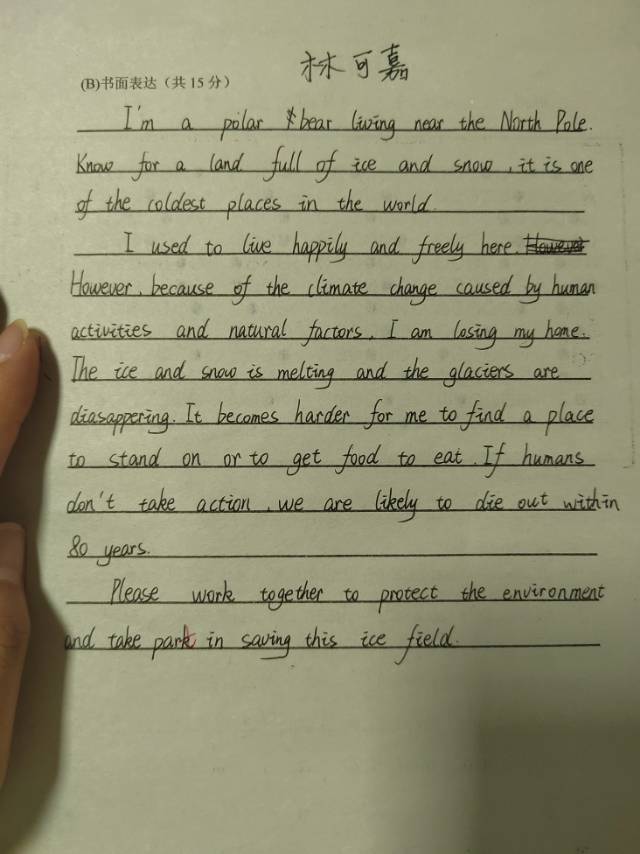 林可嘉
(B)书面表达（共 15 分）
I'm a polar bear living near the North Pole.
Know for a land full of ice and snow, it is one
of the coldest places in the world.
I used to live happily and freely here. However
However, because of the climate change caused by human
activities and natural factors, I am losing my home.
The ice and snow is melting and the glaciers are
diasappering. It becomes harder for me to find a place
to stand on or to get food to eat. If humans
don't take action, we are likely to die out within
80 years.
Please work together to protect the environment
and take park in saving this ice field.